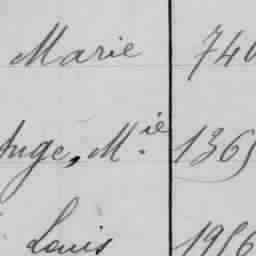 Marie 740
Ange, M.ie 1365
Louis 1956